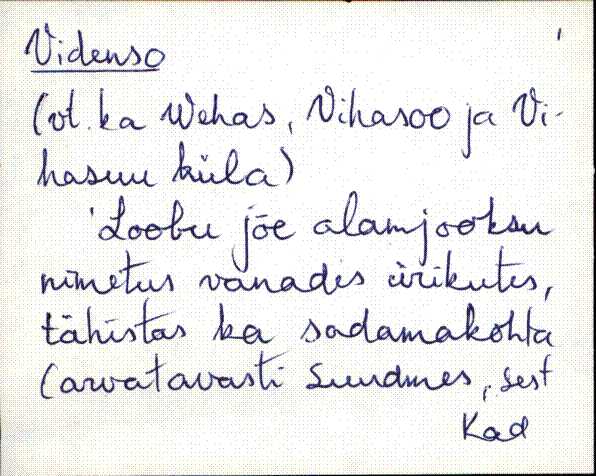 Videnso
(vt. ka Wehas, Vihasoo ja Vi-
hasuu küla)
'Loobu jõe alamjooksu
nimetus vanades ürikutes,
tähistas ka sadamakohta
(arvatavasti suudmes, sest
Kad